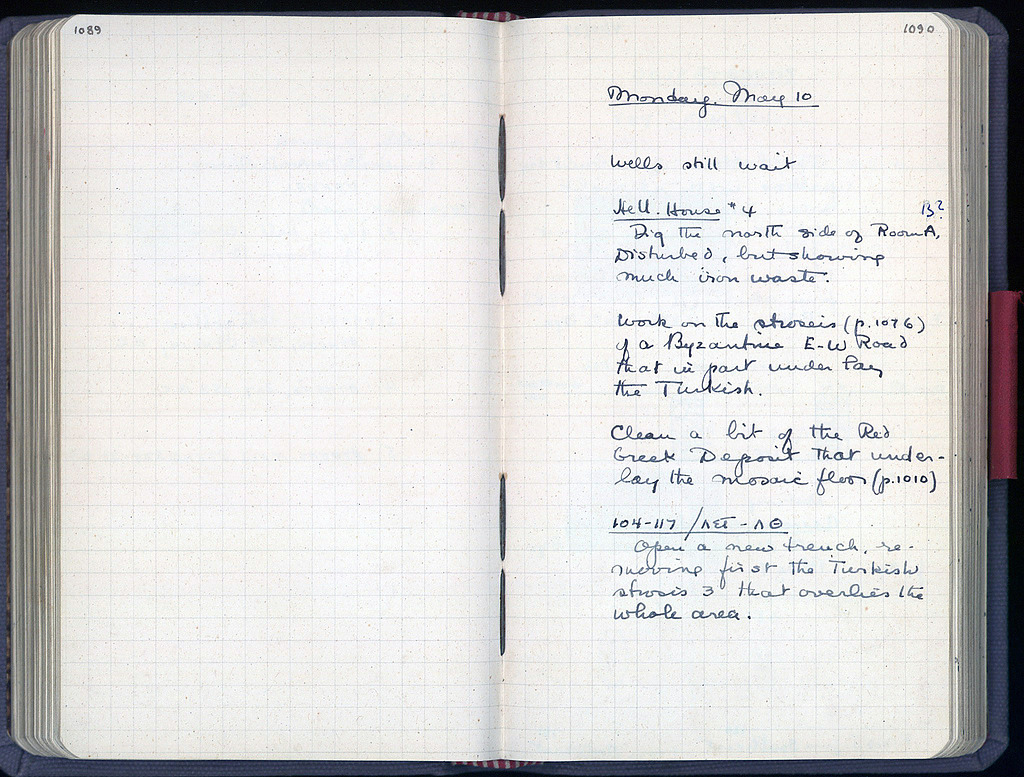 1089
1090
Monday, May 10
Wells still wait
Hell. House #4
B?
Dig the north side of Room A,
Disturbed, but showing
much iron waste.
Work on the stroseis (p.1076)
of a Byzantine E-W Road
that in part under lay
the Turkish.
Clean a bit of the Red
Greek Deposit that under-
lay the mosaic floor (p.1010)
104-117 / ΛΣΤ - ΛΘ
Open a new trench, re-
moving first the Turkish
strosis 3 that overlies the
whole area.